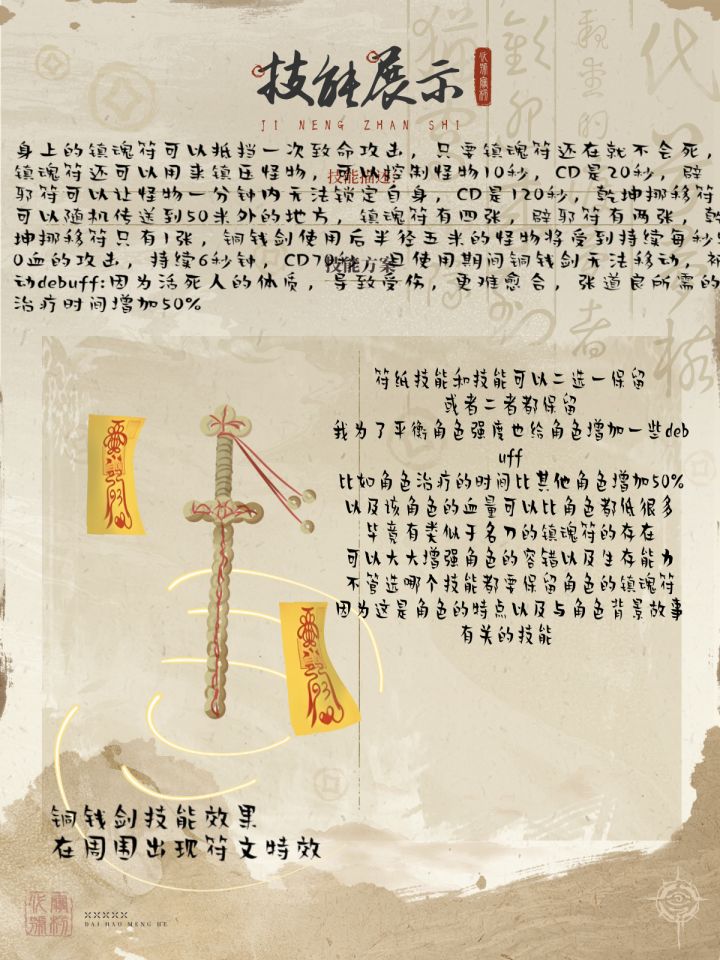 技能展示
JI NENG ZHAN SHI
身上的镇魂符可以抵挡一次致命攻击，只要镇魂符还在就不会死，
镇魂符还可以用来镇压怪物，可以控制怪物10秒，CD是20秒，辟
邪符可以让怪物一分钟内无法锁定自身，CD是120秒，乾坤挪移符
可以随机传送到50米外的地方，镇魂符有四张，辟邪符有两张，乾
坤挪移符只有1张，铜钱剑使用后半径五米的怪物将受到持续每秒
0血的攻击，持续6秒钟，CD 但使用期间铜钱剑无法移动，被
动debuff:因为活死人的体质，导致受伤，更难愈合，张道良所需的
治疗时间增加50%
技能描述
技能方案
符纸技能和技能可以二选一保留
或者二者都保留
我为了平衡角色强度也给角色增加一些deb
uff
比如角色治疗的时间比其他角色增加50%
以及该角色的血量可以比角色都低很多
毕竟有类似于名刀的镇魂符的存在
可以大大增强角色的容错以及生存能力
不管选哪个技能都要保留角色的镇魂符
因为这是角色的特点以及与角色背景故事
有关的技能
铜钱剑技能效果
在周围出现符文特效
DAI HAO MENG HE